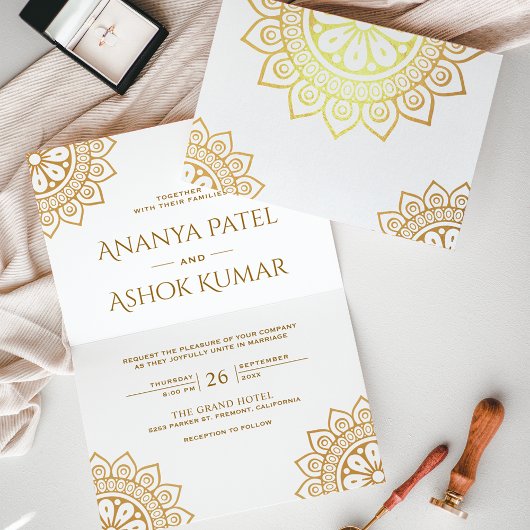 TOGETHER
WITH THEIR FAMILIES
ANANYA PATEL
AND
ASHOK KUMAR
REQUEST THE PLEASURE OF YOUR COMPANY
AS THEY JOYFULLY UNITE IN MARRIAGE
THURSDAY 26 SEPTEMBER
6:00 PM 20XX
THE GRAND HOTEL
5263 PARKER ST. FREMONT, CALIFORNIA
RECEPTION TO FOLLOW